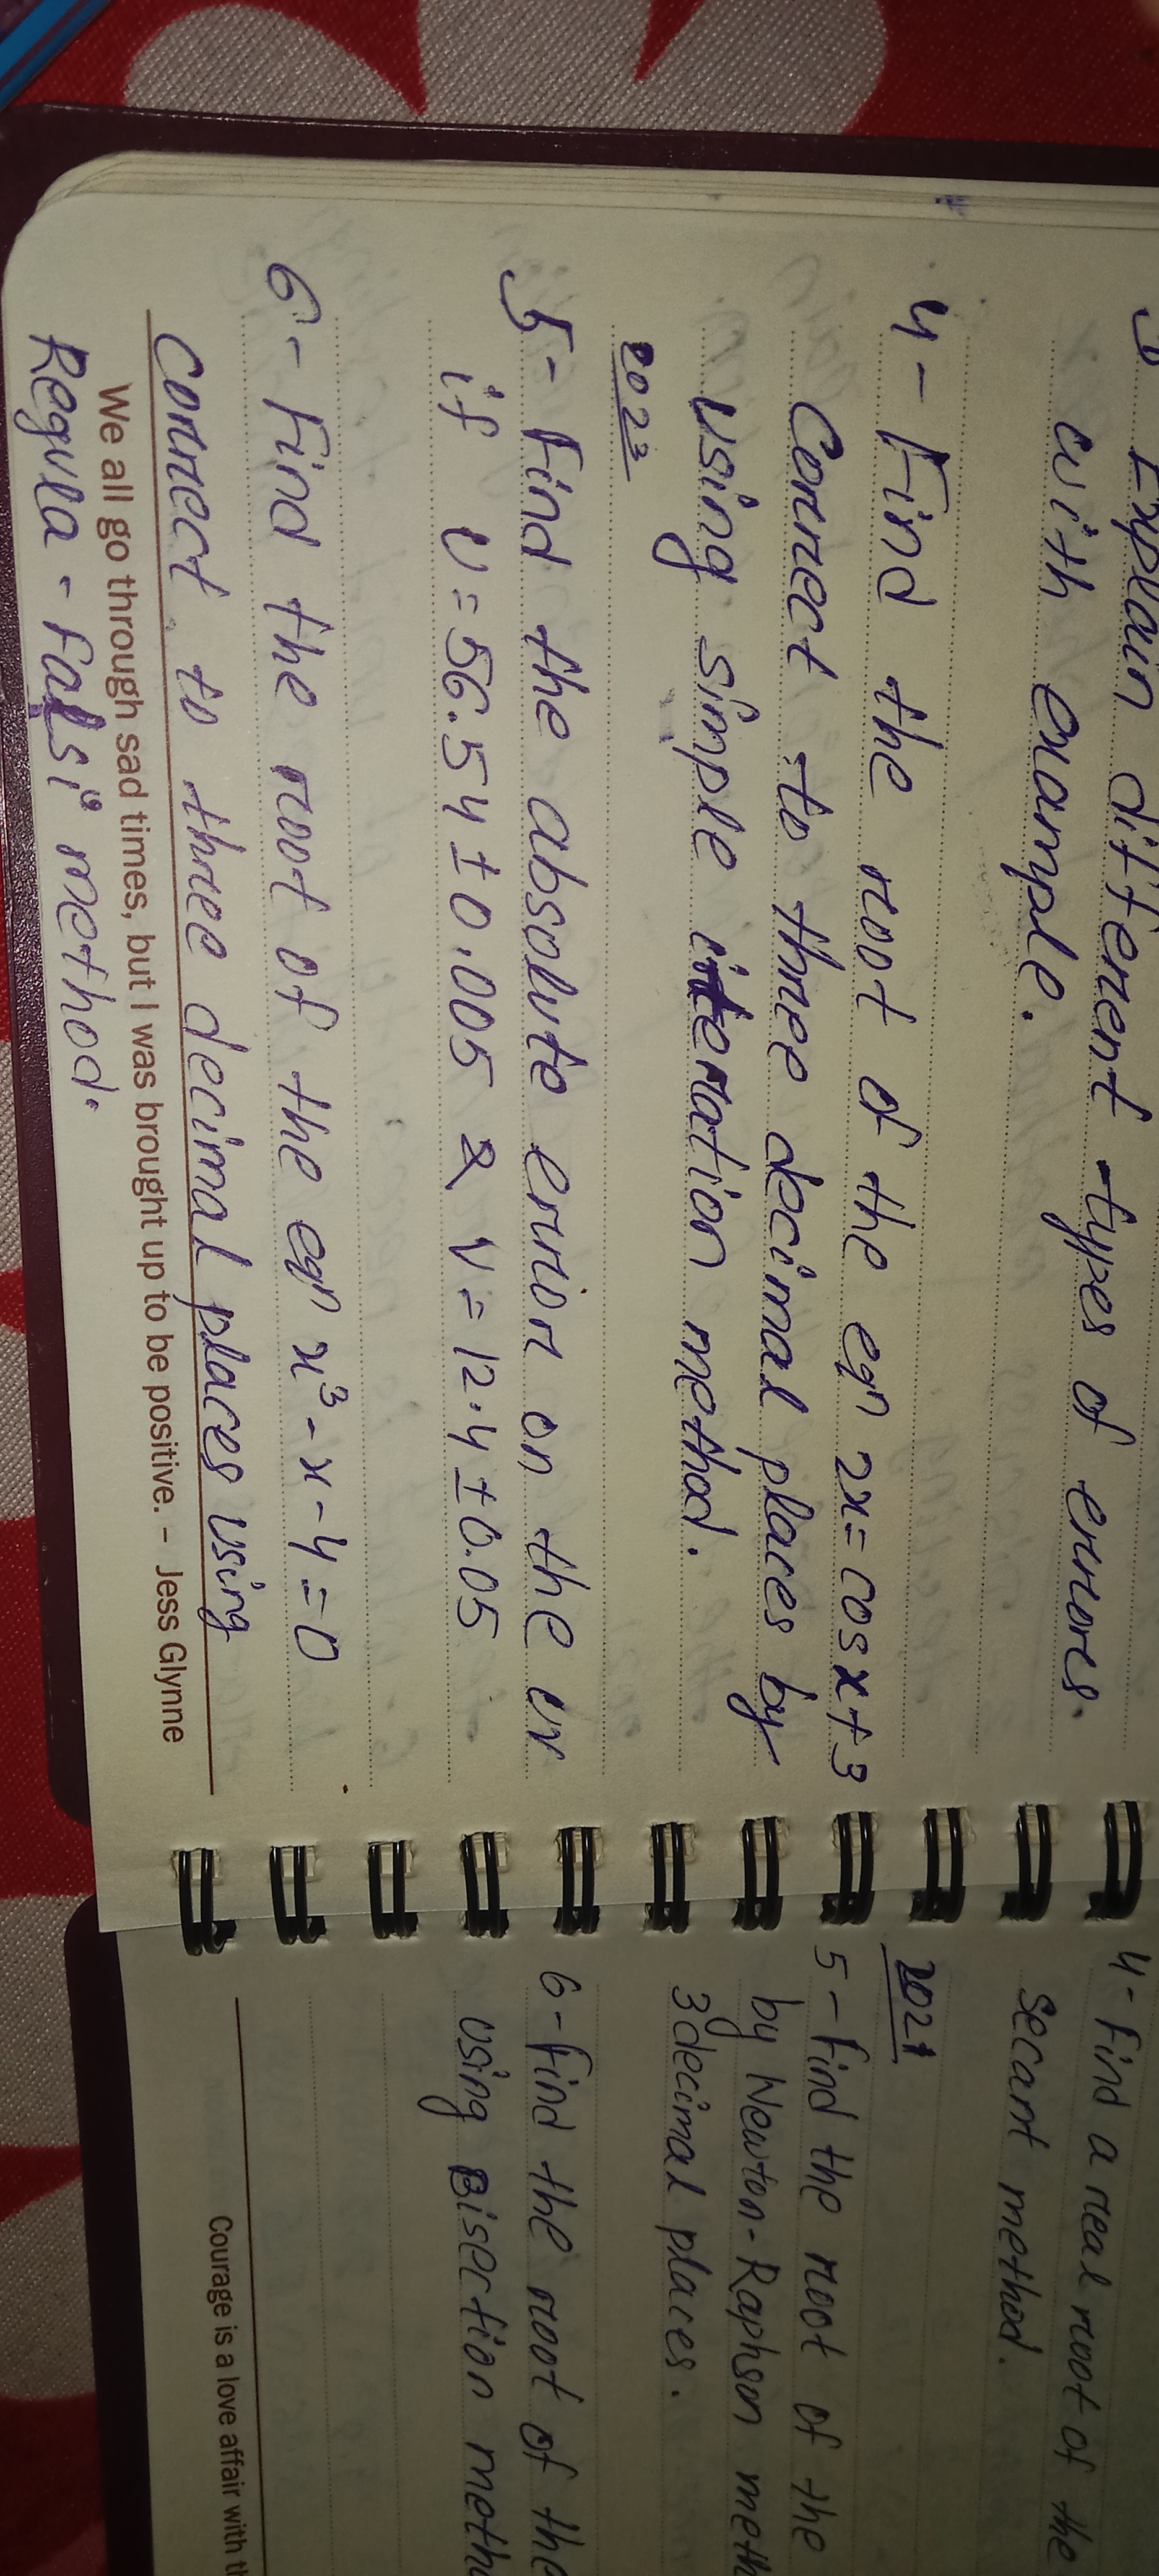 3 Explain different types of errors
with example.
4- Find the root of the eqn 2x = cosx+3
correct to three decimal places by
using simple iteration method.
2023
5- Find the absolute error on the uv
if U = 56.54 ± 0.005 & V = 12.4 ± 0.05
6- Find the root of the eqn x³-x-4=0
correct to three decimal places using
We all go through sad times, but I was brought up to be positive. - Jess Glynne
Regula-falsi method.
4- Find a real root of the
secant method.
2021
5- Find the root of the
by Newton-Raphson meth
3 decimal places.
6- Find the root of the
using Bisection meth
Courage is a love affair with th